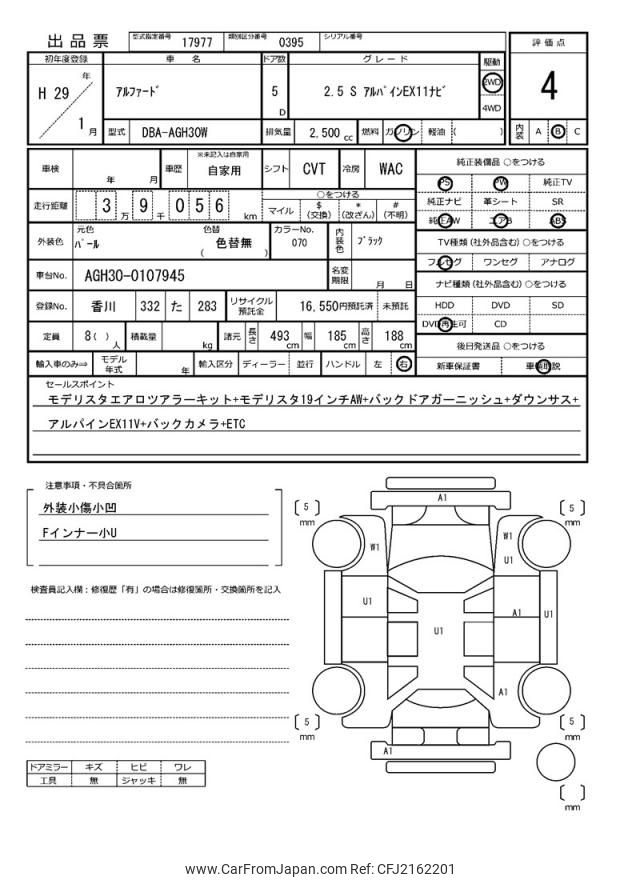 出品票 型式指定番号 17977 類別区分番号 0395 シリアル番号
初年度登録 車名 ドア数 グレード 駆動 評価点
H 29 年 1 月 アルファード 5 D 2.5 S アルパインEX11ナビ 2WD 4WD 4
型式 DBA-AGH30W 排気量 2,500 cc 燃料 ガソリン 軽油 ( ) 内装 A B C
車検 年 月 車歴 ※未記入は自家用 自家用 シフト CVT 冷房 WAC
走行距離 3 万 9 千 0 5 6 km ○をつける マイル $ (交換) * (改ざん) # (不明)
外装色 元色 パール 色替 ( 色替無 ) カラーNo. 070 内装色 ブラック
車台No. AGH30-0107945 名変期限 月 日
登録No. 香川 332 た 283 リサイクル預託金 16,550円預託済 未預託
定員 8( ) 人 積載量 kg 諸元 長さ 493 cm 幅 185 cm 高さ 188 cm
輸入車のみ⇒ モデル年式 年 輸入区分 ディーラー 並行 ハンドル 左 右
純正装備品 ○をつける
PS PW 純正TV
純正ナビ 革シート SR
純正AW エアB ABS
TV種類 (社外品含む) ○をつける
フルセグ ワンセグ アナログ
ナビ種類 (社外品含む) ○をつける
HDD DVD SD
DVD再生可 CD
後日発送品 ○をつける
新車保証書 車輌取説
セールスポイント
モデリスタエアロツアラーキット+モデリスタ19インチAW+バックドアガーニッシュ+ダウンサス+
アルパインEX11V+バックカメラ+ETC
注意事項・不具合箇所
外装小傷小凹
Fインナー小U
検査員記入欄：修復歴「有」の場合は修復箇所・交換箇所を記入
ドアミラー キズ ヒビ ワレ
工具 無 ジャッキ 無
A1
[ 5 ] mm [ 5 ] mm
W1 W1
U1
U1 U1 A1 U1
A1
[ 5 ] mm [ 5 ] mm
A1
[ ] mm
www.CarFromJapan.com Ref: CFJ2162201